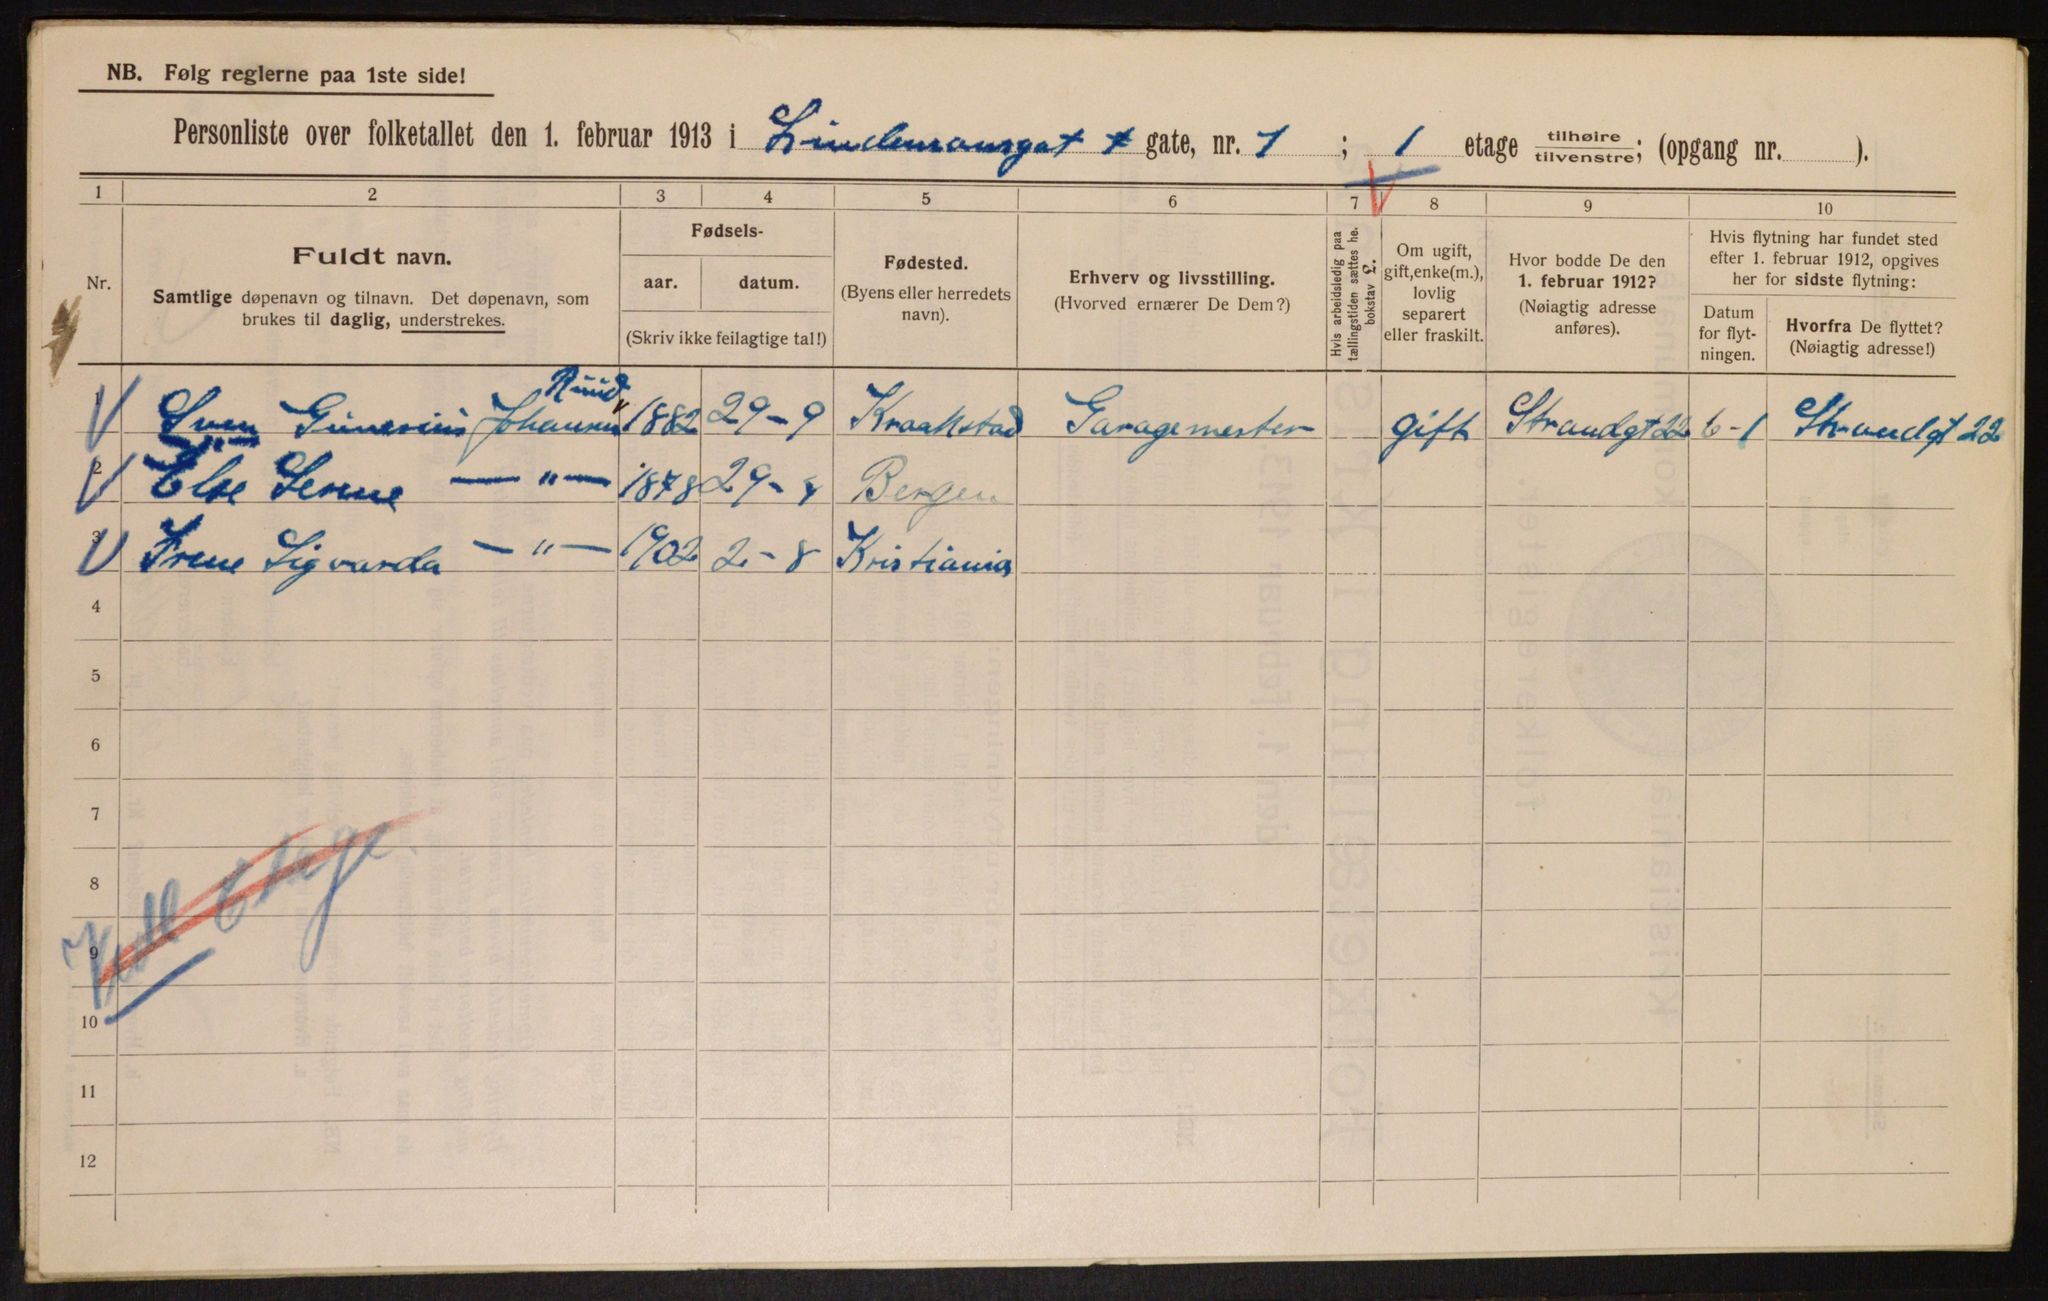 NB. Følg reglerne paa 1ste side!
Personliste over folketallet den 1. februar 1913 i Lindemansgat gate, nr. 1 ; 1 etage tilhøire tilvenstre; (opgang nr. ).
1 2 3 4 5 6 7 8 9 10
Nr.
Fuldt navn.
Samtlige døpenavn og tilnavn. Det døpenavn, som
brukes til daglig, understrekes.
Fødsels-
aar. datum.
(Skriv ikke feilagtige tal!)
Fødested.
(Byens eller herredets
navn).
Erhverv og livsstilling.
(Hvorved ernærer De Dem?)
Hvis arbeidsledig paa
tællingstiden sættes he.
bokstav £.
Om ugift,
gift, enke(m.),
lovlig
separert
eller fraskilt.
Hvor bodde De den
1. februar 1912?
(Nøiagtig adresse
anføres).
Hvis flytning har fundet sted
efter 1. februar 1912, opgives
her for sidste flytning:
Datum
for flyt-
ningen.
Hvorfra De flyttet?
(Nøiagtig adresse!)
Ruud
1 Sven Gunerius Johannes 1882 29-9 Kraakstad Garagemester gift Strandgt 22 6-1 Strandgt 22
2 Else Serine — " — 1878 29-8 Bergen
3 Irene Sigvarda — " — 1902 2-8 Kristiania
4
5
6
7
8
9
10
11
12